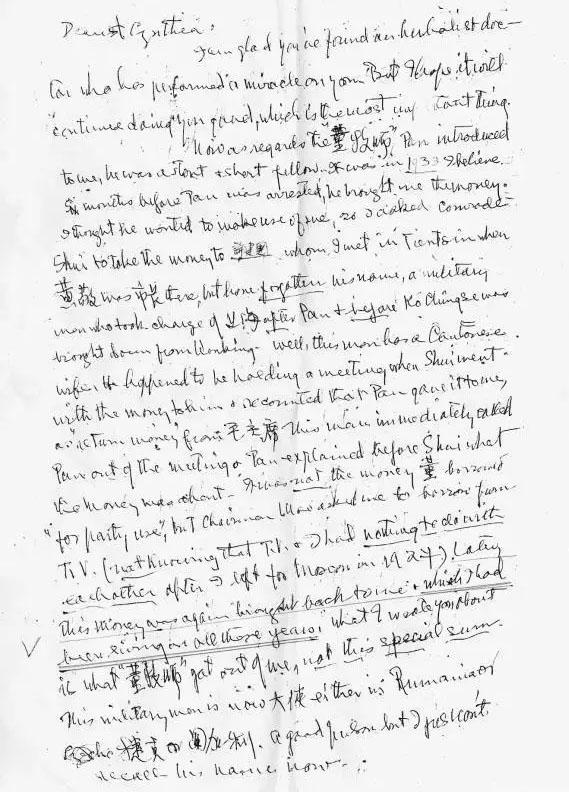 Dearest Cynthia:
I am glad you've found an herbalist doc-
tor who has performed a miracle on you. But I hope it will
continue doing you good, which is the most important thing.
Now as regards the 董牧师" Pan introduced
to me, he was a stout & short fellow. It was in 1933 I believe
Six months before Pan was arrested, he brought me the money.
I thought he wanted to make use of me, so I asked comrade
Shui to take the money to whom I met in Tientsin when
黄敬 was 市长 there, but have forgotten his name, a military
man who took charge of 上海 after Pan & before Ko Chingse was
brought down from Nanking. Well, this man has a Cantonese
wife. He happened to be holding a meeting when Shui went
with the money to him & recounted that Pan gave it to me,
as "return money" from 毛主席 This man immediately called
Pan out of the meeting & Pan explained before Shui what
the money was about. It was not the money 董 borrowed
"for party use", but Chairman Mao asked me to borrow from
T.V. (not knowing that T.V. & I had nothing to do with
each other after I left for Moscow in 1927). Later
this money was again brought back to me & which I had
been living on all these years. What I wrote you about
is what "董牧师" got out of me, not this special sum.
This military man is now 大使 either in Rumania or
捷克 or 加利. A good person but I just can't
recall his name now.